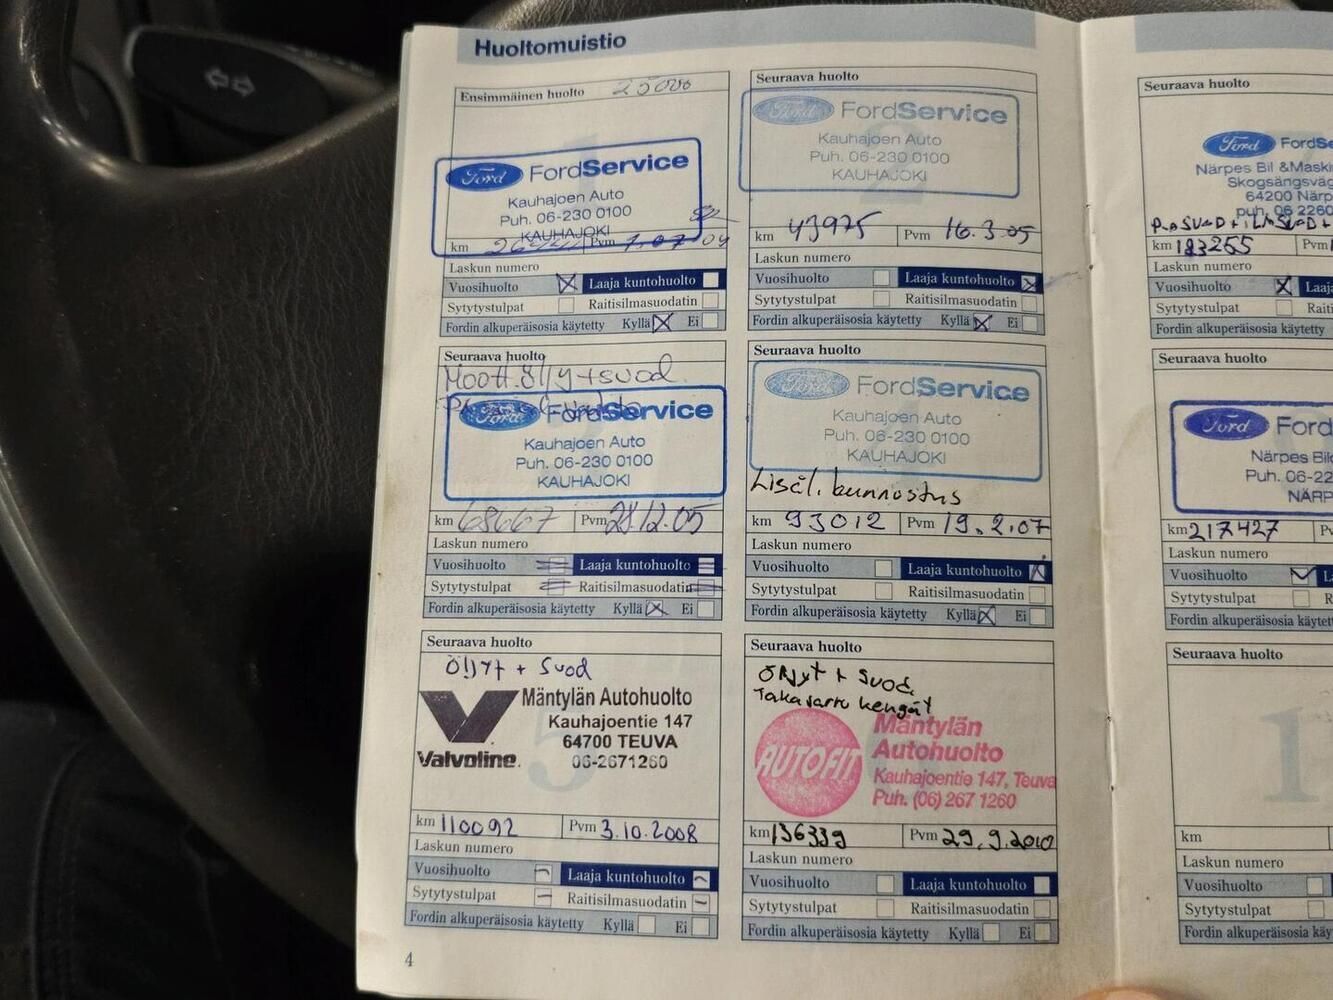 Huoltomuistio
Ensimmäinen huolto 25000
Ford FordService
Kauhajoen Auto
Puh. 06-230 0100
KAUHAJOKI
km Pvm 7.07 04
Laskun numero
Vuosihuolto Laaja kuntohuolto
Sytytystulpat Raitisilmasuodatin
Fordin alkuperäisosia käytetty Kyllä Ei
Seuraava huolto
2
Ford FordService
Kauhajoen Auto
Puh. 06-230 0100
KAUHAJOKI
km 43975 Pvm 16.3.05
Laskun numero
Vuosihuolto Laaja kuntohuolto
Sytytystulpat Raitisilmasuodatin
Fordin alkuperäisosia käytetty Kyllä Ei
Seuraava huolto
Moott.öljy+suod.
Ford FordService
Kauhajoen Auto
Puh. 06-230 0100
KAUHAJOKI
km 68667 Pvm 28.12.05
Laskun numero
Vuosihuolto Laaja kuntohuolto
Sytytystulpat Raitisilmasuodatin
Fordin alkuperäisosia käytetty Kyllä Ei
Seuraava huolto
Ford FordService
Kauhajoen Auto
Puh. 06-230 0100
KAUHAJOKI
Lisäl. kunnostus
km 93012 Pvm 19.2.07
Laskun numero
Vuosihuolto Laaja kuntohuolto
Sytytystulpat Raitisilmasuodatin
Fordin alkuperäisosia käytetty Kyllä Ei
Seuraava huolto
Öljyt + Suod
5
Mäntylän Autohuolto
Kauhajoentie 147
64700 TEUVA
Valvoline. 06-2671260
km 110092 Pvm 3.10.2008
Laskun numero
Vuosihuolto Laaja kuntohuolto
Sytytystulpat Raitisilmasuodatin
Fordin alkuperäisosia käytetty Kyllä Ei
Seuraava huolto
Öljyt + Suod.
Takajarru kengät
AUTOFIT
Mäntylän
Autohuolto
Kauhajoentie 147, Teuva
Puh. (06) 267 1260
km 136339 Pvm 29.9.2010
Laskun numero
Vuosihuolto Laaja kuntohuolto
Sytytystulpat Raitisilmasuodatin
Fordin alkuperäisosia käytetty Kyllä Ei
4
Seuraava huolto
Ford FordSe
Närpes Bil & Maski
Skogsängsväg
64200 Närp
puh. 06 2260
km 183255 Pvm
Laskun numero
Vuosihuolto Laaj
Sytytystulpat Raiti
Fordin alkuperäisosia käytetty
Seuraava huolto
Ford Ford
Närpes Bil
Puh. 06-22
NÄRP
km 217427
Laskun numero
Vuosihuolto
Sytytystulpat
Fordin alkuperäisosia käytett
Seuraava huolto
1
km
Laskun numero
Vuosihuolto
Sytytystulpat
Fordin alkuperäisosia käy